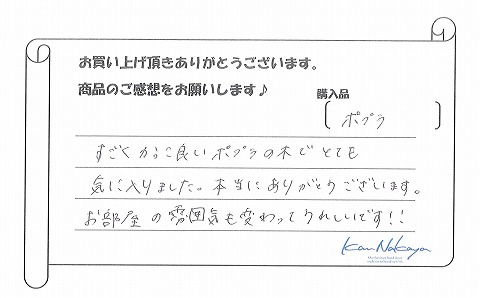 お買い上げ頂きありがとうございます。
商品のご感想をお願いします♪
購入品
ポプラ
すごくかっこ良いポプラの木でとても
気に入りました。本当にありがとうございます。
お部屋の雰囲気も変わってうれしいです!!
Kan Nakaya